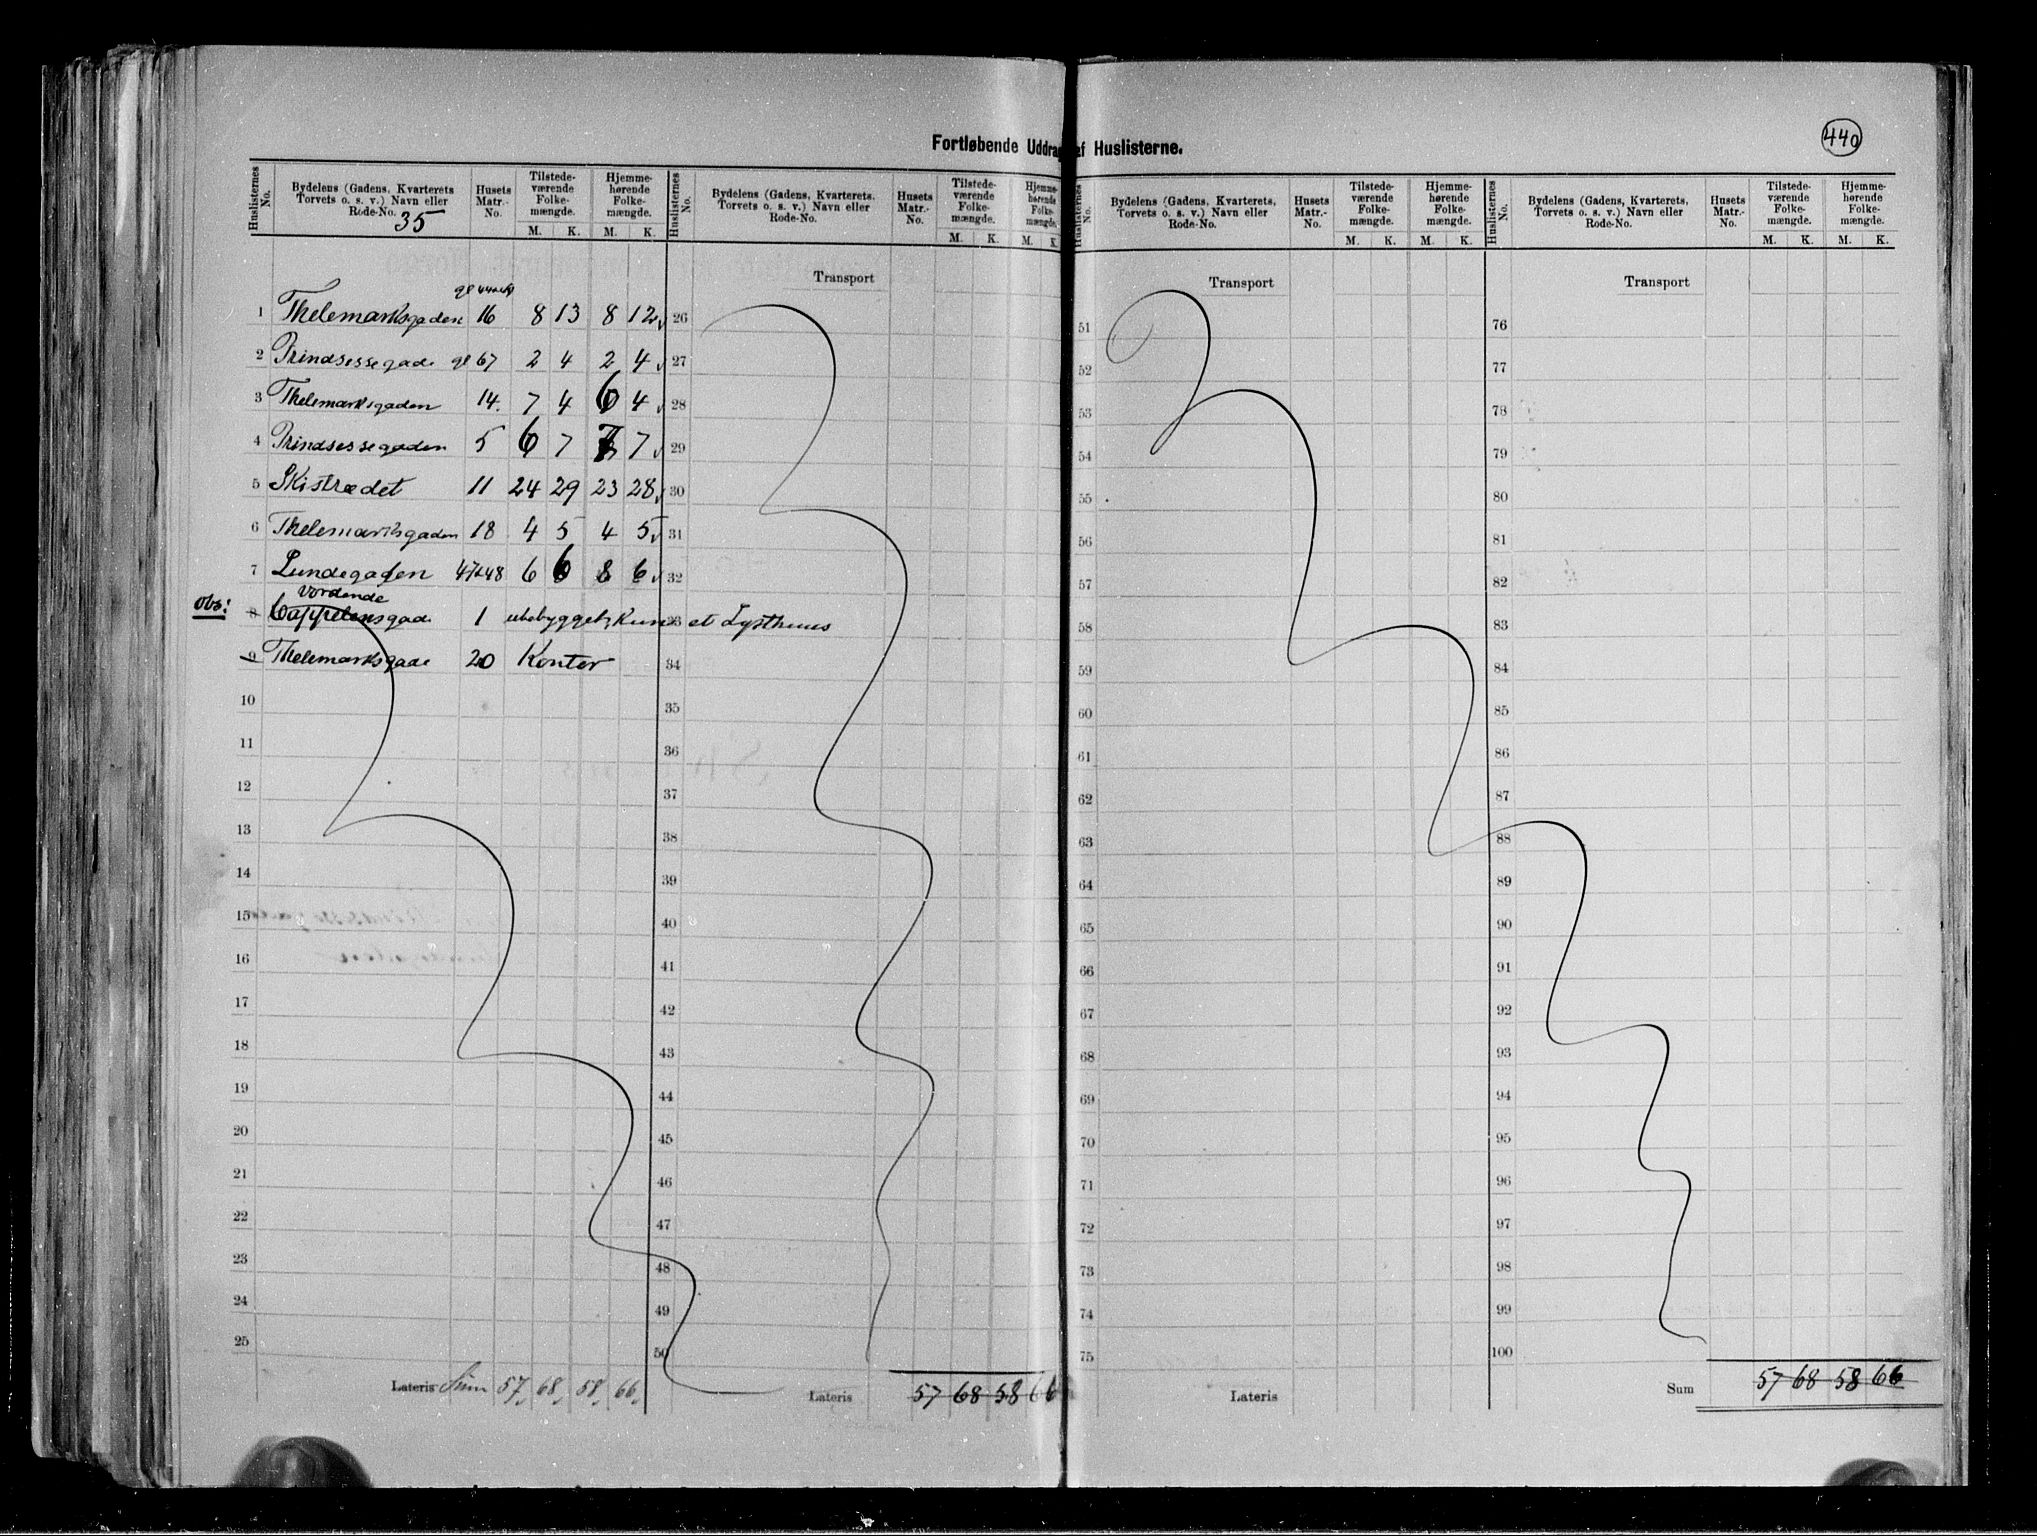 440
Fortløbende Uddrag af Huslisterne.
Huslisternes No. Bydelens (Gadens, Kvarterets Torvets o. s. v.) Navn eller Rode-No. Husets Matr.-No. Tilstede-værende Folke-mængde. M. K. Hjemme-hørende Folke-mængde. M. K.
35
1 Thelemarksgaden 16 8 13 8 12
2 Prindsessegade gl 67 2 4 2 4
3 Thelemarksgaden 14. 7 4 6 4
4 Prindsessegaden 5 6 7 7 7
5 Skistrædet 11 24 29 23 28
6 Thelemarksgaden 18 4 5 4 5
7 Lundegaden 47&48 6 6 8 6
vordende
Obs: 8 Cappelensgade 1 ubebygget, Kun et Lysthuus
9 Thelemarksgade 20 Kontor
10
11
12
13
14
15
16
17
18
19
20
21
22
23
24
25
Lateris Sum 57 68 58 66
Huslisternes No. Bydelens (Gadens, Kvarterets, Torvets o. s. v.) Navn eller Rode-No. Husets Matr.-No. Tilstede-værende Folke-mængde. M. K. Hjemme-hørende Folke-mængde. M. K.
Transport
26
27
28
29
30
31
32
33
34
35
36
37
38
39
40
41
42
43
44
45
46
47
48
49
50
Lateris 57 68 58 66
Huslisternes No. Bydelens (Gadens, Kvarterets, Torvets o. s. v.) Navn eller Rode-No. Husets Matr.-No. Tilstede-værende Folke-mængde. M. K. Hjemme-hørende Folke-mængde. M. K.
Transport
51
52
53
54
55
56
57
58
59
60
61
62
63
64
65
66
67
68
69
70
71
72
73
74
75
Lateris
Huslisternes No. Bydelens (Gadens, Kvarterets, Torvets o. s. v.) Navn eller Rode-No. Husets Matr.-No. Tilstede-værende Folke-mængde. M. K. Hjemme-hørende Folke-mængde. M. K.
Transport
76
77
78
79
80
81
82
83
84
85
86
87
88
89
90
91
92
93
94
95
96
97
98
99
100
Sum 57 68 58 66